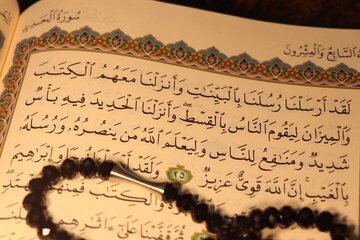 سُورَةُ الْحَدِيدِ
السَّابِعُ وَالْعِشْرُونَ
لَقَدْ أَرْسَلْنَا رُسُلَنَا بِالْبَيِّنَٰتِ وَأَنزَلْنَا مَعَهُمُ الْكِتَٰبَ
وَالْمِيزَانَ لِيَقُومَ النَّاسُ بِالْقِسْطِ ۖ وَأَنزَلْنَا الْحَدِيدَ فِيهِ بَأْسٌ
شَدِيدٌ وَمَنَٰفِعُ لِلنَّاسِ وَلِيَعْلَمَ اللَّهُ مَن يَنصُرُهُۥ وَرُسُلَهُۥ
بِالْغَيْبِ ۚ إِنَّ اللَّهَ قَوِيٌّ عَزِيزٌ ٢٥ وَلَقَدْ أَرْسَلْنَا نُوحًا وَإِبْرَٰهِيمَ
وَالْكِتَٰبَ ۖ فَمِنْهُم
قَفَّيْنَا عَلَىٰٓ ءَاثَٰرِهِم